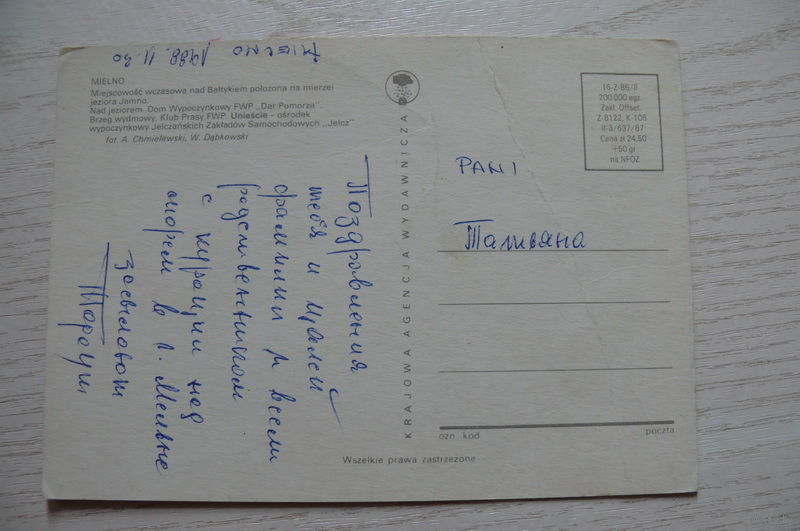 MIELNO 1988. 11. 30
MIELNO
Miejscowość wczasowa nad Bałtykiem położona na mierzei
jeziora Jamno.
Nad jeziorem. Dom Wypoczynkowy FWP „Dar Pomorza".
Brzeg wydmowy. Klub Prasy FWP. Unieście - ośrodek
wypoczynkowy Jelczańskich Zakładów Samochodowych „Jelcz"
fot. A. Chmielewski, W. Dąbkowski
Поздравления
тебя и
фамилии и всем
родственником
с курации над
морем в г. Мельне
KRAJOWA AGENCJA WYDAWNICZA
16-Z-86/II
200 000 egz.
Zakł. Offset.
Z-8122, K-106
II-3/637/87
Cena zł 24,50
+50 gr
na NFOZ
PANI
Татьяна
ozn. kod
poczta
Wszelkie prawa zastrzeżone